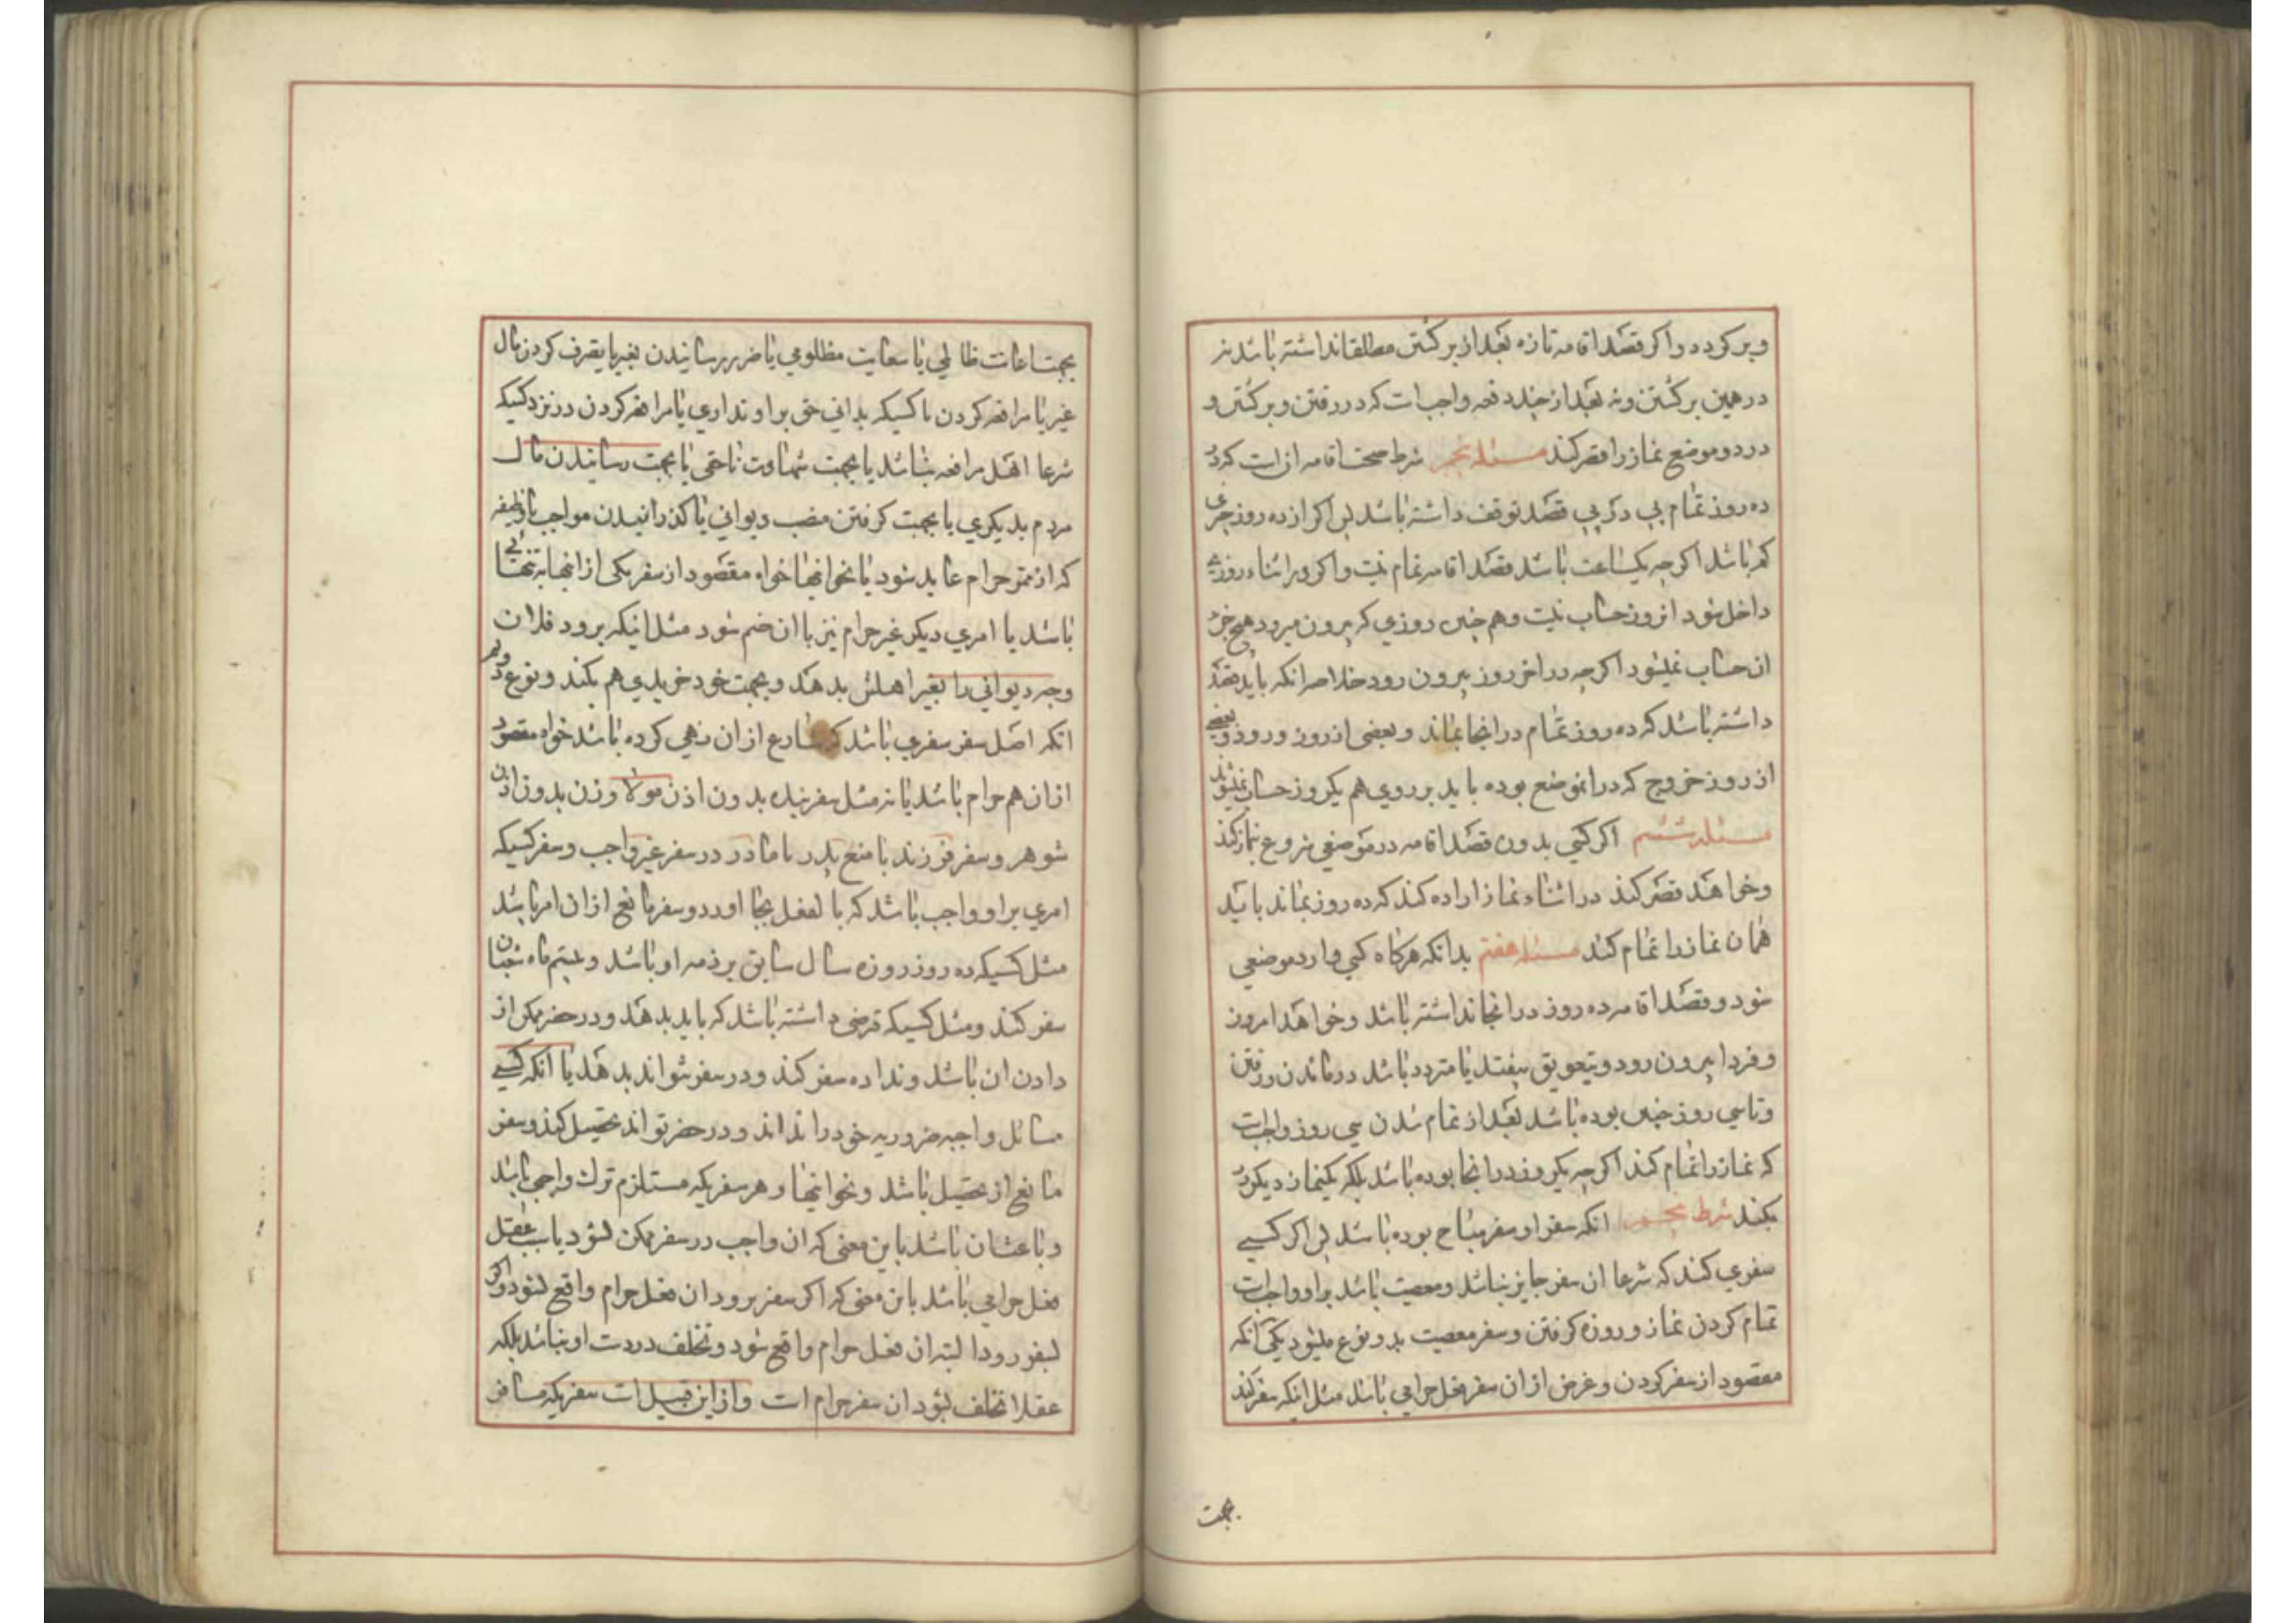 و برکردد و اکر قصد اقامه تازه بعد از برکشتن مطلقا نداشته باشد نه
در همین برکشتن و نه بعد از چند دفعه واجب است که در رفتن و برکشتن و
در دو موضع نماز را قصر کند مسئله پنجم شرط صحت اقامه ان است که در
ده روز تمام پی در پی قصد توقف داشته باشد پس اکر از ده روز جزئی
کم باشد اکر چه یکساعت باشد قصد اقامه تمام نیست و اکر در اثناء روزی
داخل شود انروز حساب نیست و هم چنین روزی که بیرون میرود هیچ جزء
ان حساب نمیشود اکر چه در اخر روز بیرون رود خلاصه انکه باید قصد
داشته باشد که ده روز تمام در انجا بماند و بعضی از روز ورود و بعضی
از روز خروج که در انموضع بوده باید بر روی هم یکروز حساب نمیشوند
مسئله ششم اکر کسی بدون قصد اقامه در موضعی شروع بنماز کند
و خواهد قصر کند در اثناء نماز اراده کند که ده روز بماند باید
همان نماز را تمام کند مسئله هفتم بدانکه هرکاه کسی وارد موضعی
شود و قصد اقامه ده روز در انجا نداشته باشد و خواهد امروز
و فردا بیرون رود و بتعویق بیفتد یا متردد باشد در ماندن و رفتن
و تا سی روز چنین بوده باشد بعد از تمام شدن سی روز واجب است
که نماز را تمام کند اکر چه یکروز در انجا بوده باشد بلکه یکنماز دیکر
بکند شرط پنجم انکه سفر او سفر مباح بوده باشد پس اکر کسی
سفری کند که شرعا ان سفر جایز نباشد و معصیت باشد بر او واجب است
تمام کردن نماز و روزه کرفتن و سفر معصیت بدو نوع میشود یکی انکه
مقصود از سفر کردن و غرض از ان سفر فعل حرامی باشد مثل اینکه سفر کند
بجهت
بجهت اعانت ظالمی یا سعایت مظلومی یا ضرر رسانیدن بغیر یا تصرف کردن مال
غیر یا مرافعه کردن با کسیکه بدانی حق بر او نداری یا مرافعه کردن در نزد کسیکه
شرعا اهل مرافعه نباشد یا بجهت شهادت ناحقی یا بجهت رسانیدن مال
مردم بدیکری یا بجهت کرفتن منصب دیوانی یا کذرانیدن مواجب یا وظیفه
که از ممر حرام عاید شود یا نحو انها خواه مقصود از سفر یکی از انها به تنهائی
باشد یا امری دیکر غیر حرام نیز با ان ضم شود مثل اینکه برود فلان
وجه دیوانی را بغیر اهلش بدهد و بجهت خود خریدی هم بکند و نوع دوم
انکه اصل سفر سفری باشد که شارع از ان نهی کرده باشد خواه مقصود
از ان هم حرام باشد یا نه مثل سفر بنده بدون اذن مولا و زن بدون اذن
شوهر و سفر فرزند با منع پدر یا مادر در سفر غیر واجب و سفر کسیکه
امری بر او واجب باشد که بالفعل بجا اورد و سفر مانع از ان امر باشد
مثل کسیکه ده روز روزه سال سابق بر ذمه او باشد و بیستم ماه شعبان
سفر کند و مثل کسیکه قرضی داشته باشد که باید بدهد و در حضر ممکن از
دادن ان باشد و نداده سفر کند و در سفر نتواند بدهد یا انکه کسی
مسائل واجبه ضروریه خود را نداند و در حضر تواند تحصیل کند و سفر
مانع از تحصیل باشد و نحو انها و هر سفریکه مستلزم ترک واجبی باشد
و باعث ان باشد باین معنی که ان واجب در سفر ممکن نشود یا سبب فعل
فعل حرامی باشد باین معنی که اکر سفر برود ان فعل حرام واقع نشود و اکر
بسفر رود البته ان فعل حرام واقع شود و تخلف در دست او نباشد بلکه
عقلا تخلف نشود ان سفر حرام است و از این قبیل است سفریکه مسافر